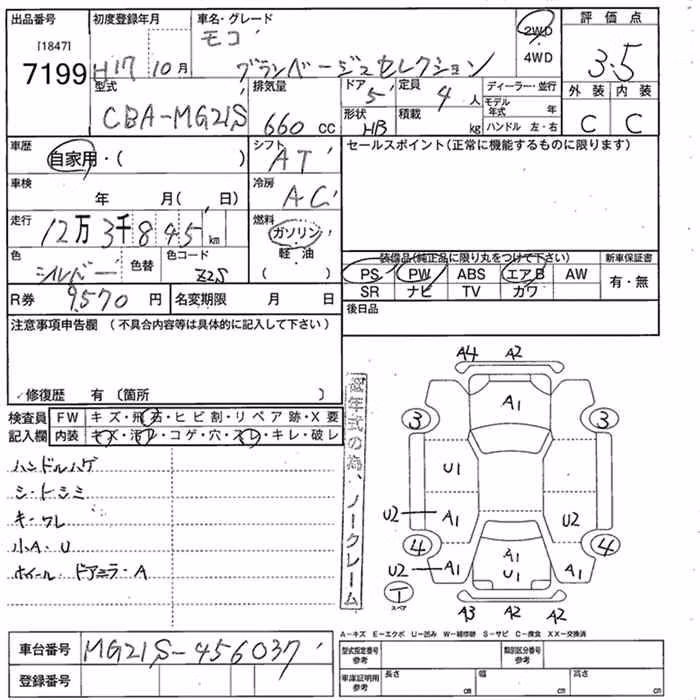 出品番号 初度登録年月 車名・グレード 評価点
[1847] モコ
7199 H17 10月 グランベージュセレクション 2WD 3.5
4WD
型式 排気量 ドア 定員 ディーラー・並行 外装 内装
CBA-MG21S 660 cc 5 4 人 モデル年式 年 C C
形状 HB 積載 kg ハンドル 左・右
車歴 シフト セールスポイント(正常に機能するものに限ります)
自家用・( ) AT
車検 年 月( 日) 冷房 AC
走行 12万3千845km 燃料 ガソリン
軽・油
( )
色 シルバー 色替 色コード Z2S
装備品(純正品に限り丸をつけて下さい) 新車保証書
PS PW ABS エアB AW 有・無
SR ナビ TV カワ
R券 9570 円 名変期限 月 日
後日品
注意事項申告欄 (不具合内容等は具体的に記入して下さい)
修復歴 有 (箇所 )
検査員 FW キズ・飛石・ヒビ割・リペア跡・X要
記入欄 内装 キズ・汚レ・コゲ・穴・スレ・キレ・破レ
ハンドルハゲ
シートシミ
キーワレ
小A・U
ホイール・ドアミラ・A
年式の為、ノークレーム
A4 A2
A1
3 3
U1
U2 A1 U2
4 4
A1
U2 A1 U1 A1
T
スペア
A3 A2 A2
A-キズ E-エクボ U-凹み W-補修跡 S-サビ C-腐食 XX-交換済
車台番号 MG21S-456037
登録番号
型式指定番号 参考 類別区分番号 参考
車庫証明用 参考 長さ cm 幅 cm 高さ cm